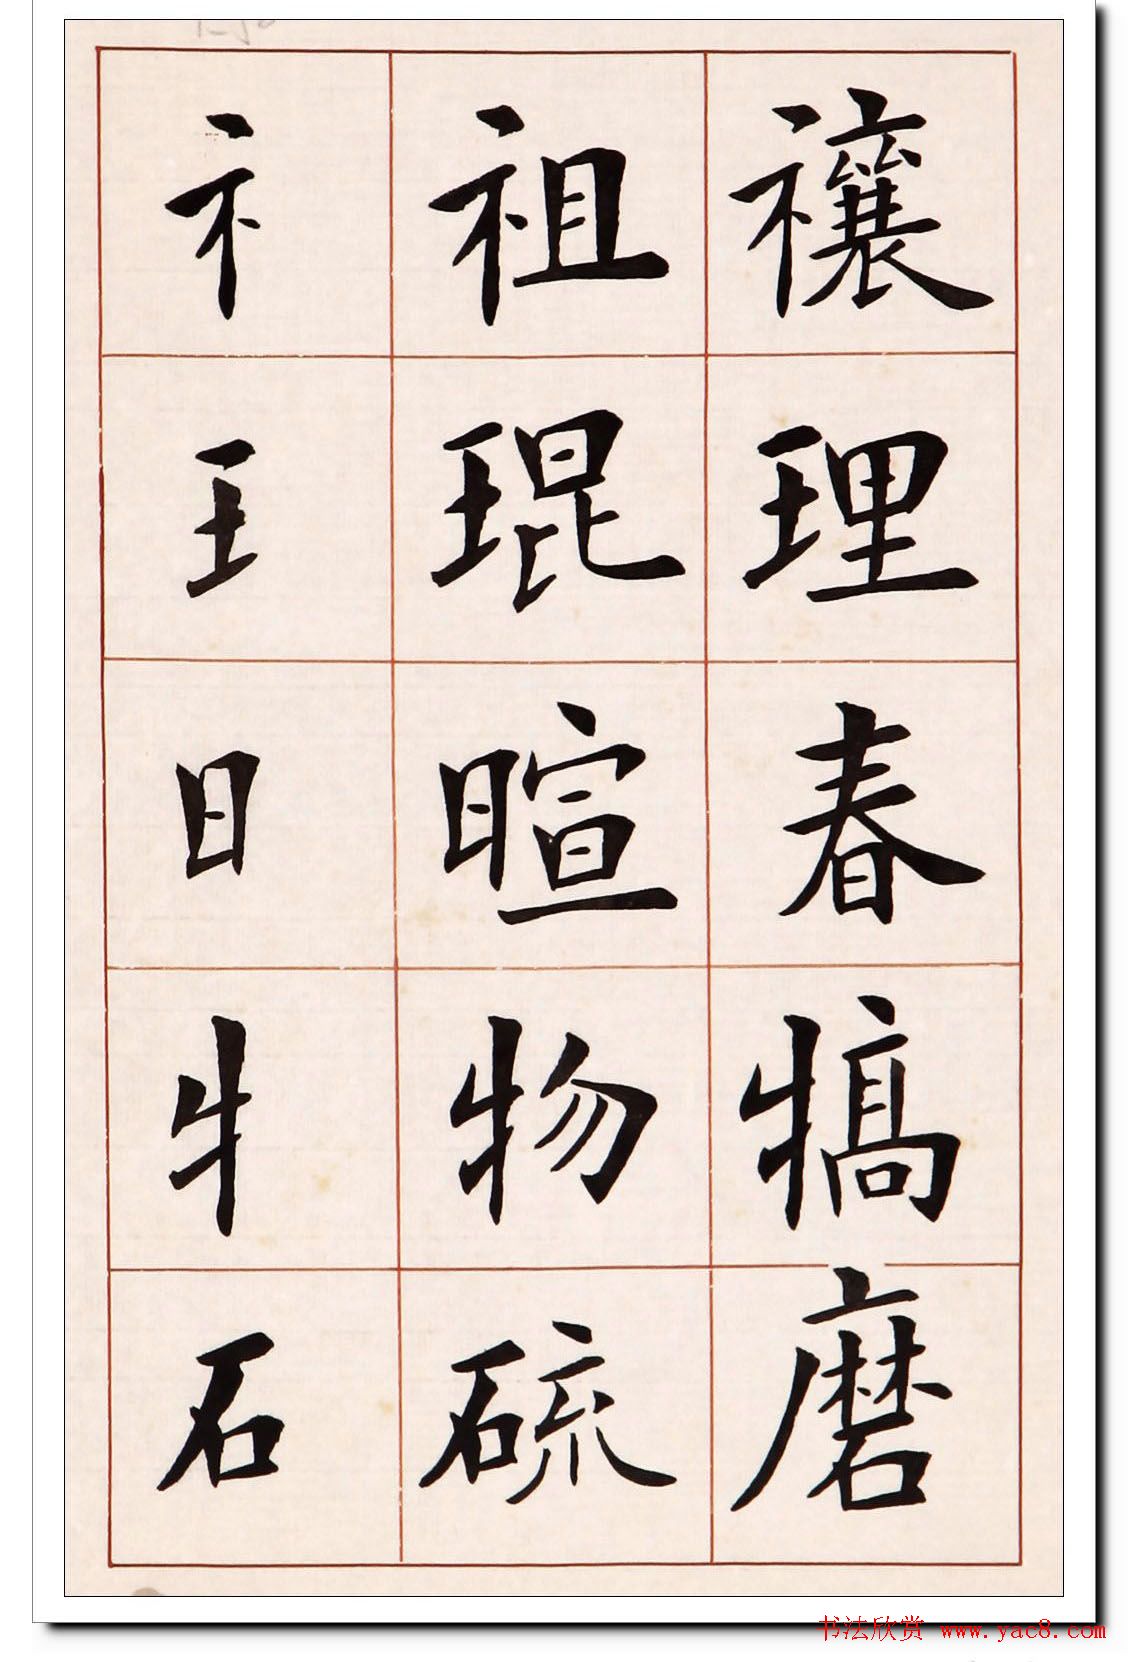 礻祖禳
王琨理
日暄春
牜物犒
石硫磨
书法欣赏 www.yac8.com